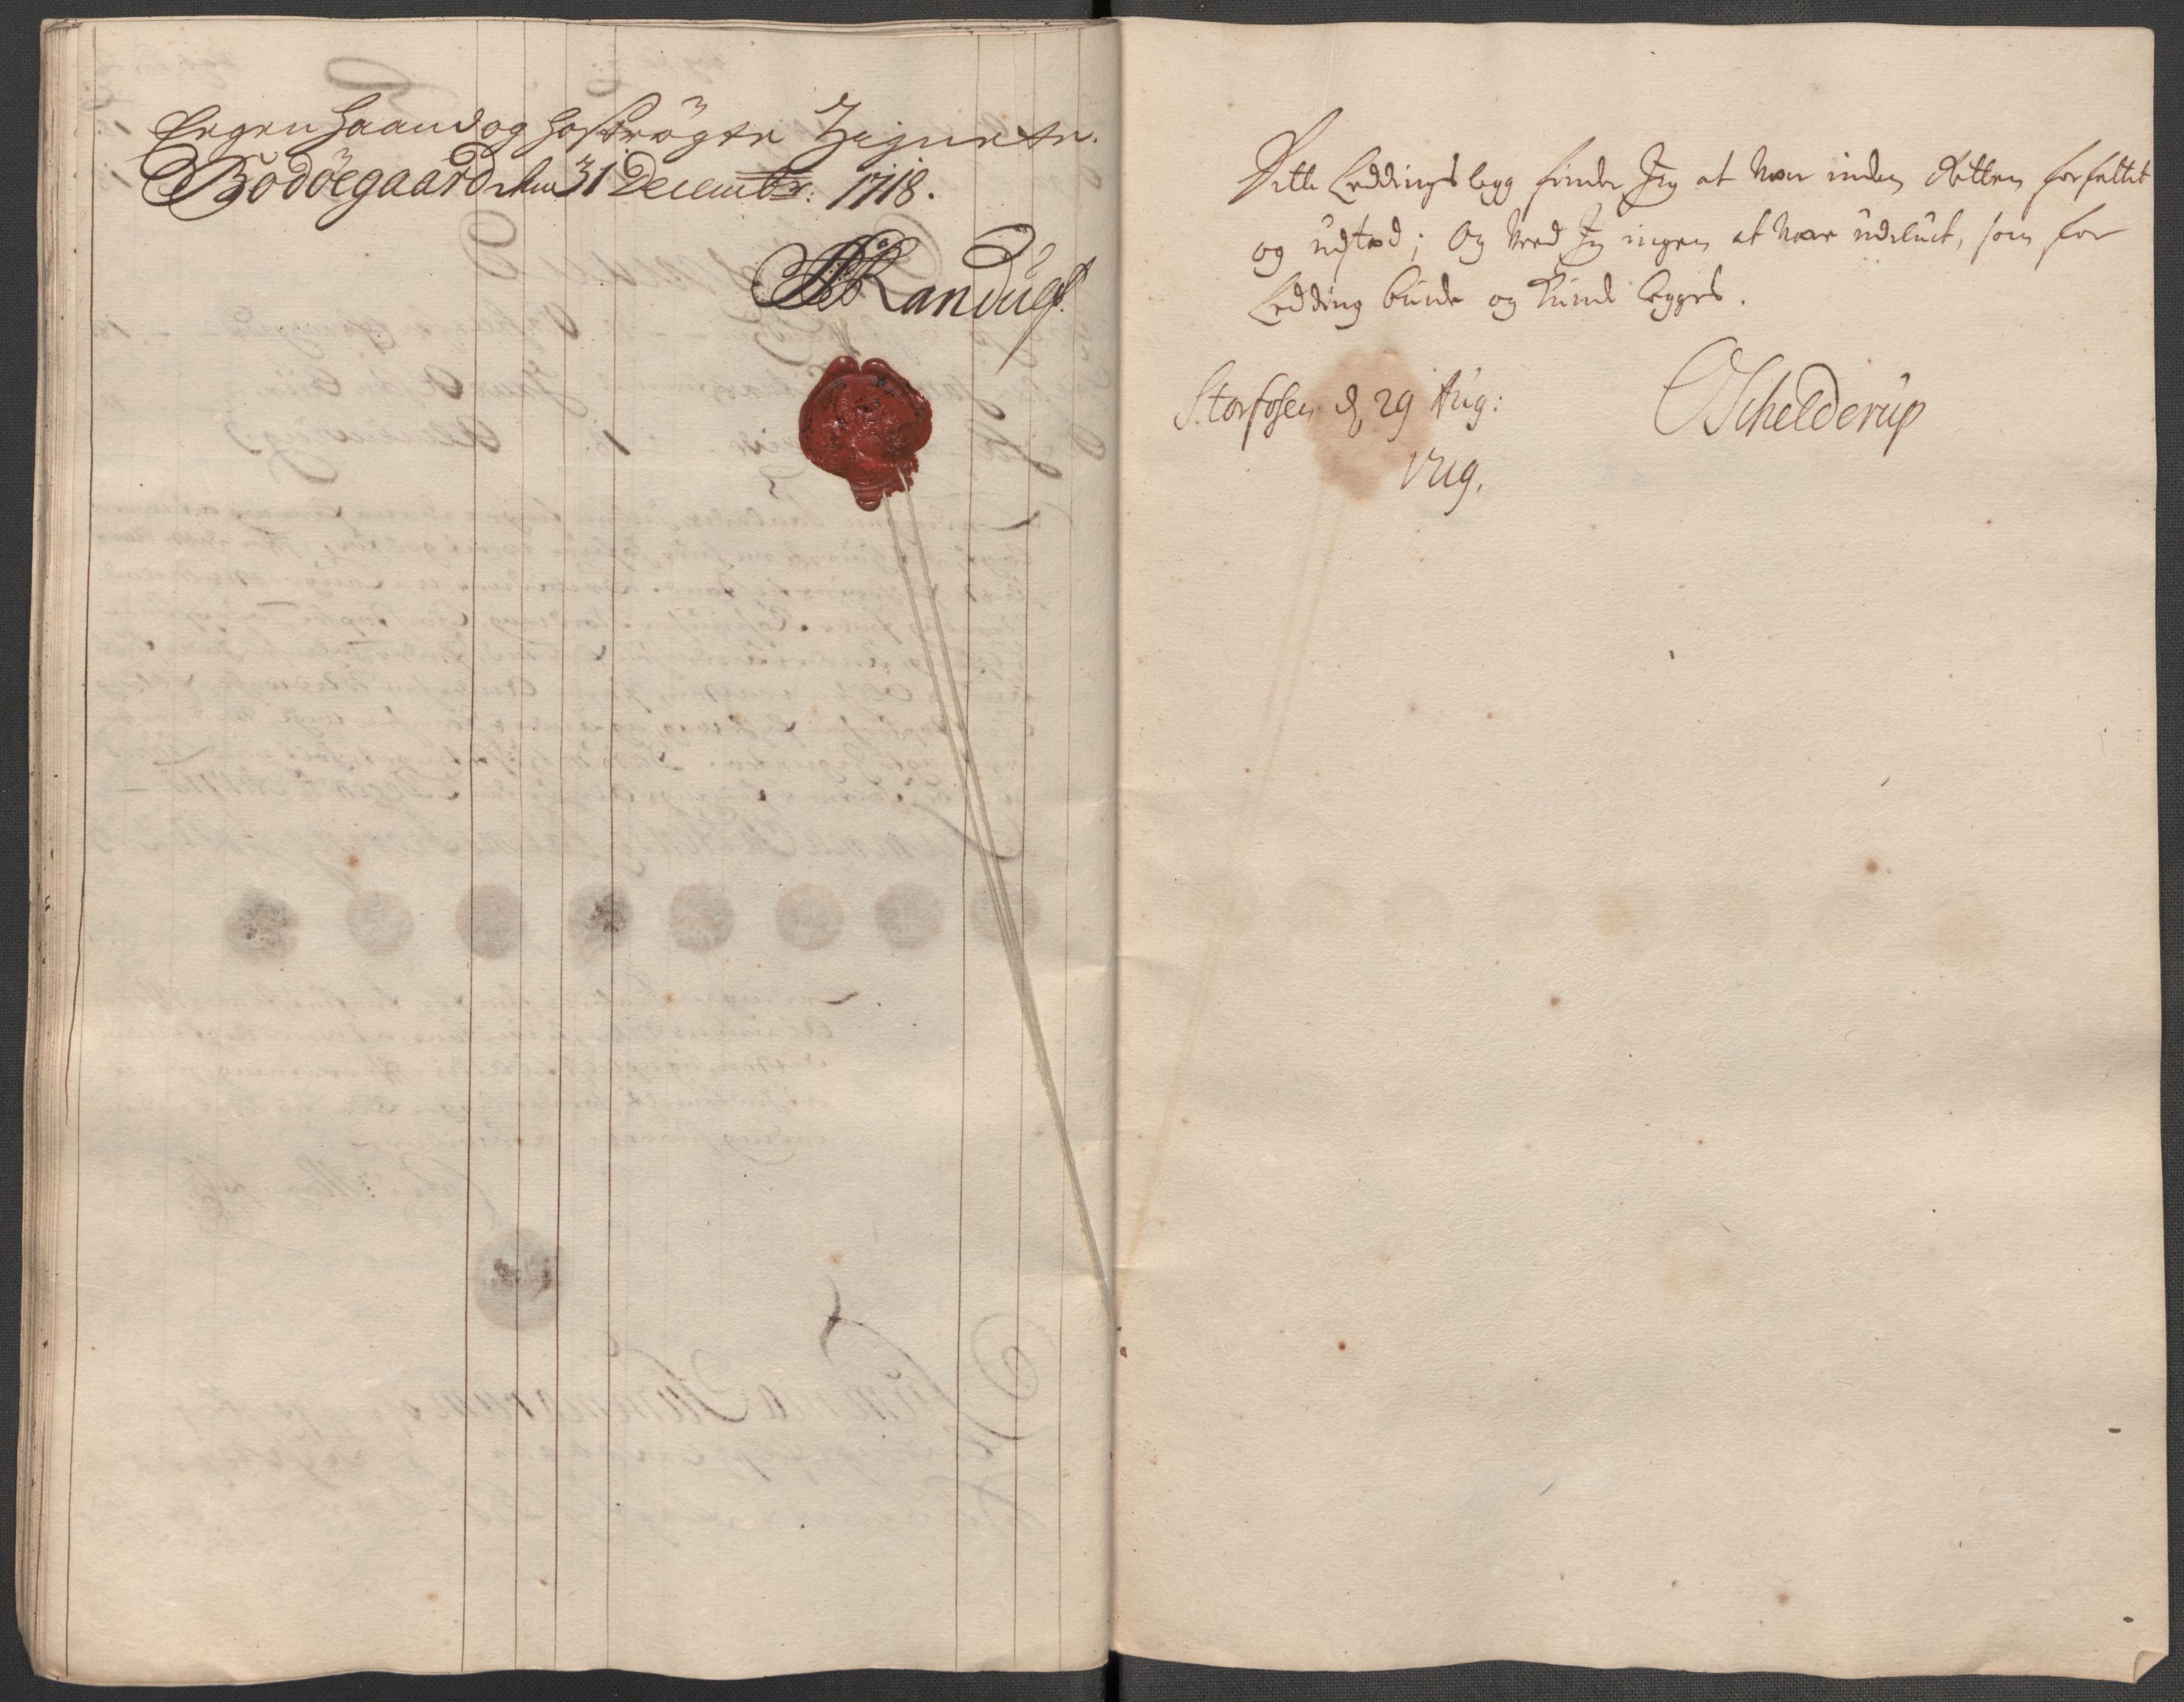 Eegen Haand og hoströgte Zignete.
Bodöegaard den 31 Decembr: 1718.
Randulf
Dette Leddings legg finder Jeg at være inden Retten forfattet
og udsted; Og veed Jeg ingen at være udeluct, som for
Ledding burde og kunde legges.
Storfosen d. 29 Aug:
1719.
OSchelderup